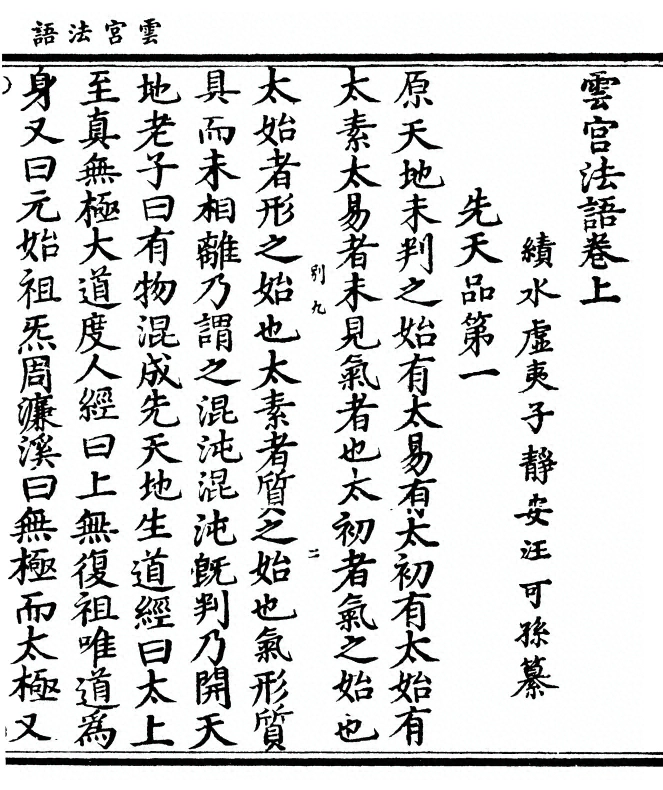 雲宮法語
雲宮法語卷上
績水虛夷子靜安汪可孫纂
先天品第一
原天地未判之始有太易有太初有太始有
太素太易者未見氣者也太初者氣之始也
別九
二
太始者形之始也太素者質之始也氣形質
具而未相離乃謂之混沌混沌旣判乃開天
地老子曰有物混成先天地生道經曰太上
至真無極大道度人經曰上無復祖唯道爲
身又曰元始祖炁周濂溪曰無極而太極又